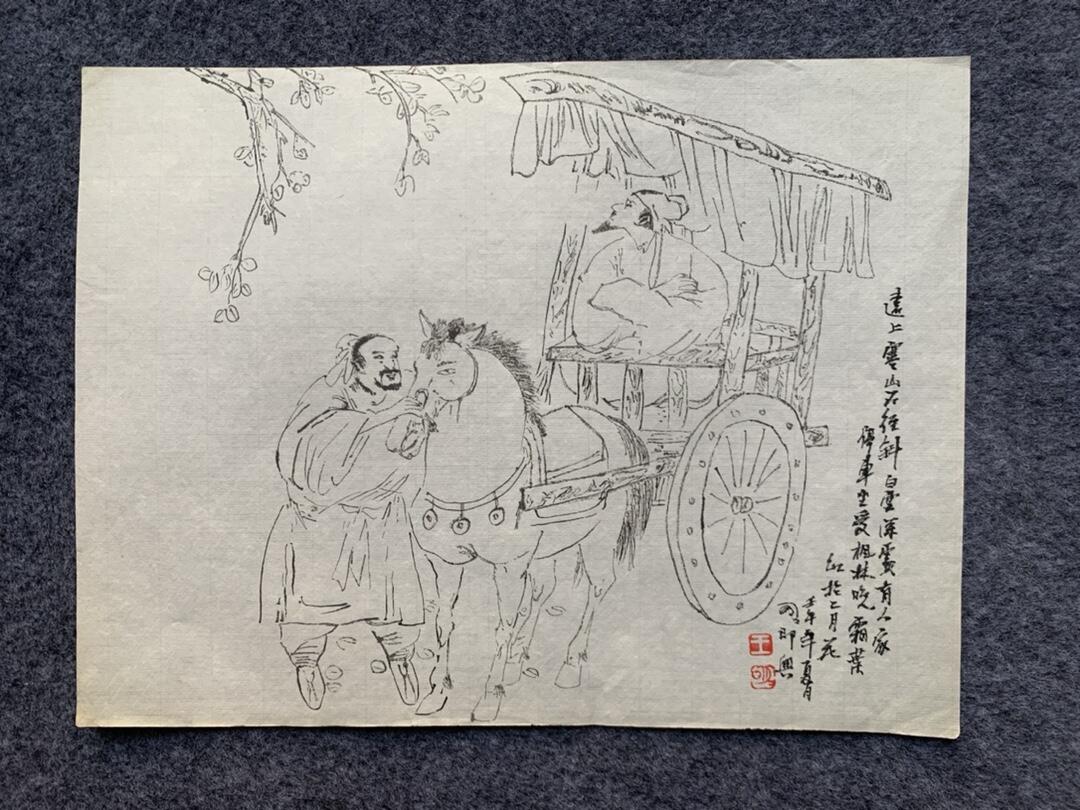 遠上寒山石徑斜白雲深處有人家
停車坐愛楓林晚霜葉
紅於二月花
壬午年夏月
即興
王